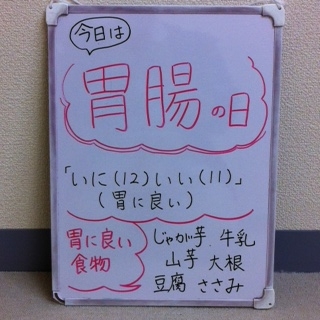 今日は
胃腸の日
「いに(12)いい(11)」
(胃に良い)
胃に良い
食物
じゃが芋 牛乳
山芋 大根
豆腐 ささみ